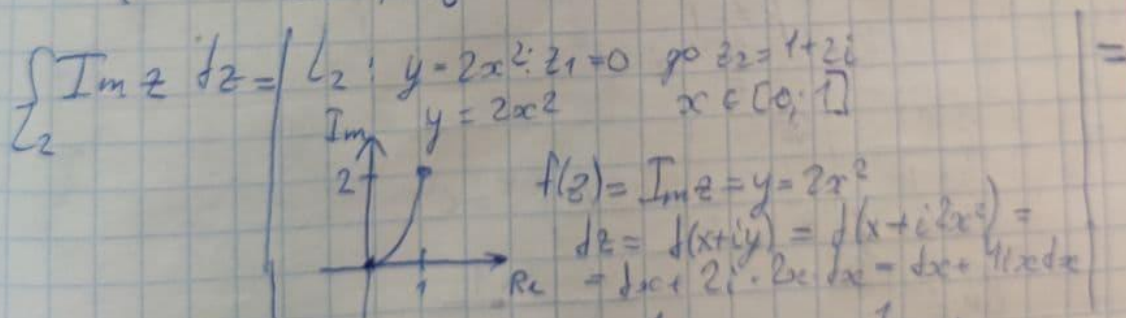 ∫ Im z dz = | L₂: y = 2x²: z₁ = 0 до z₂ = 1+2i | =
L₂
y = 2x² x ∈ [0; 1]
Im
2
f(z) = Im z = y = 2x²
dz = d(x+iy) = d(x+i2x²) =
1 Re = dx + 2i · 2x dx = dx + 4ix dx